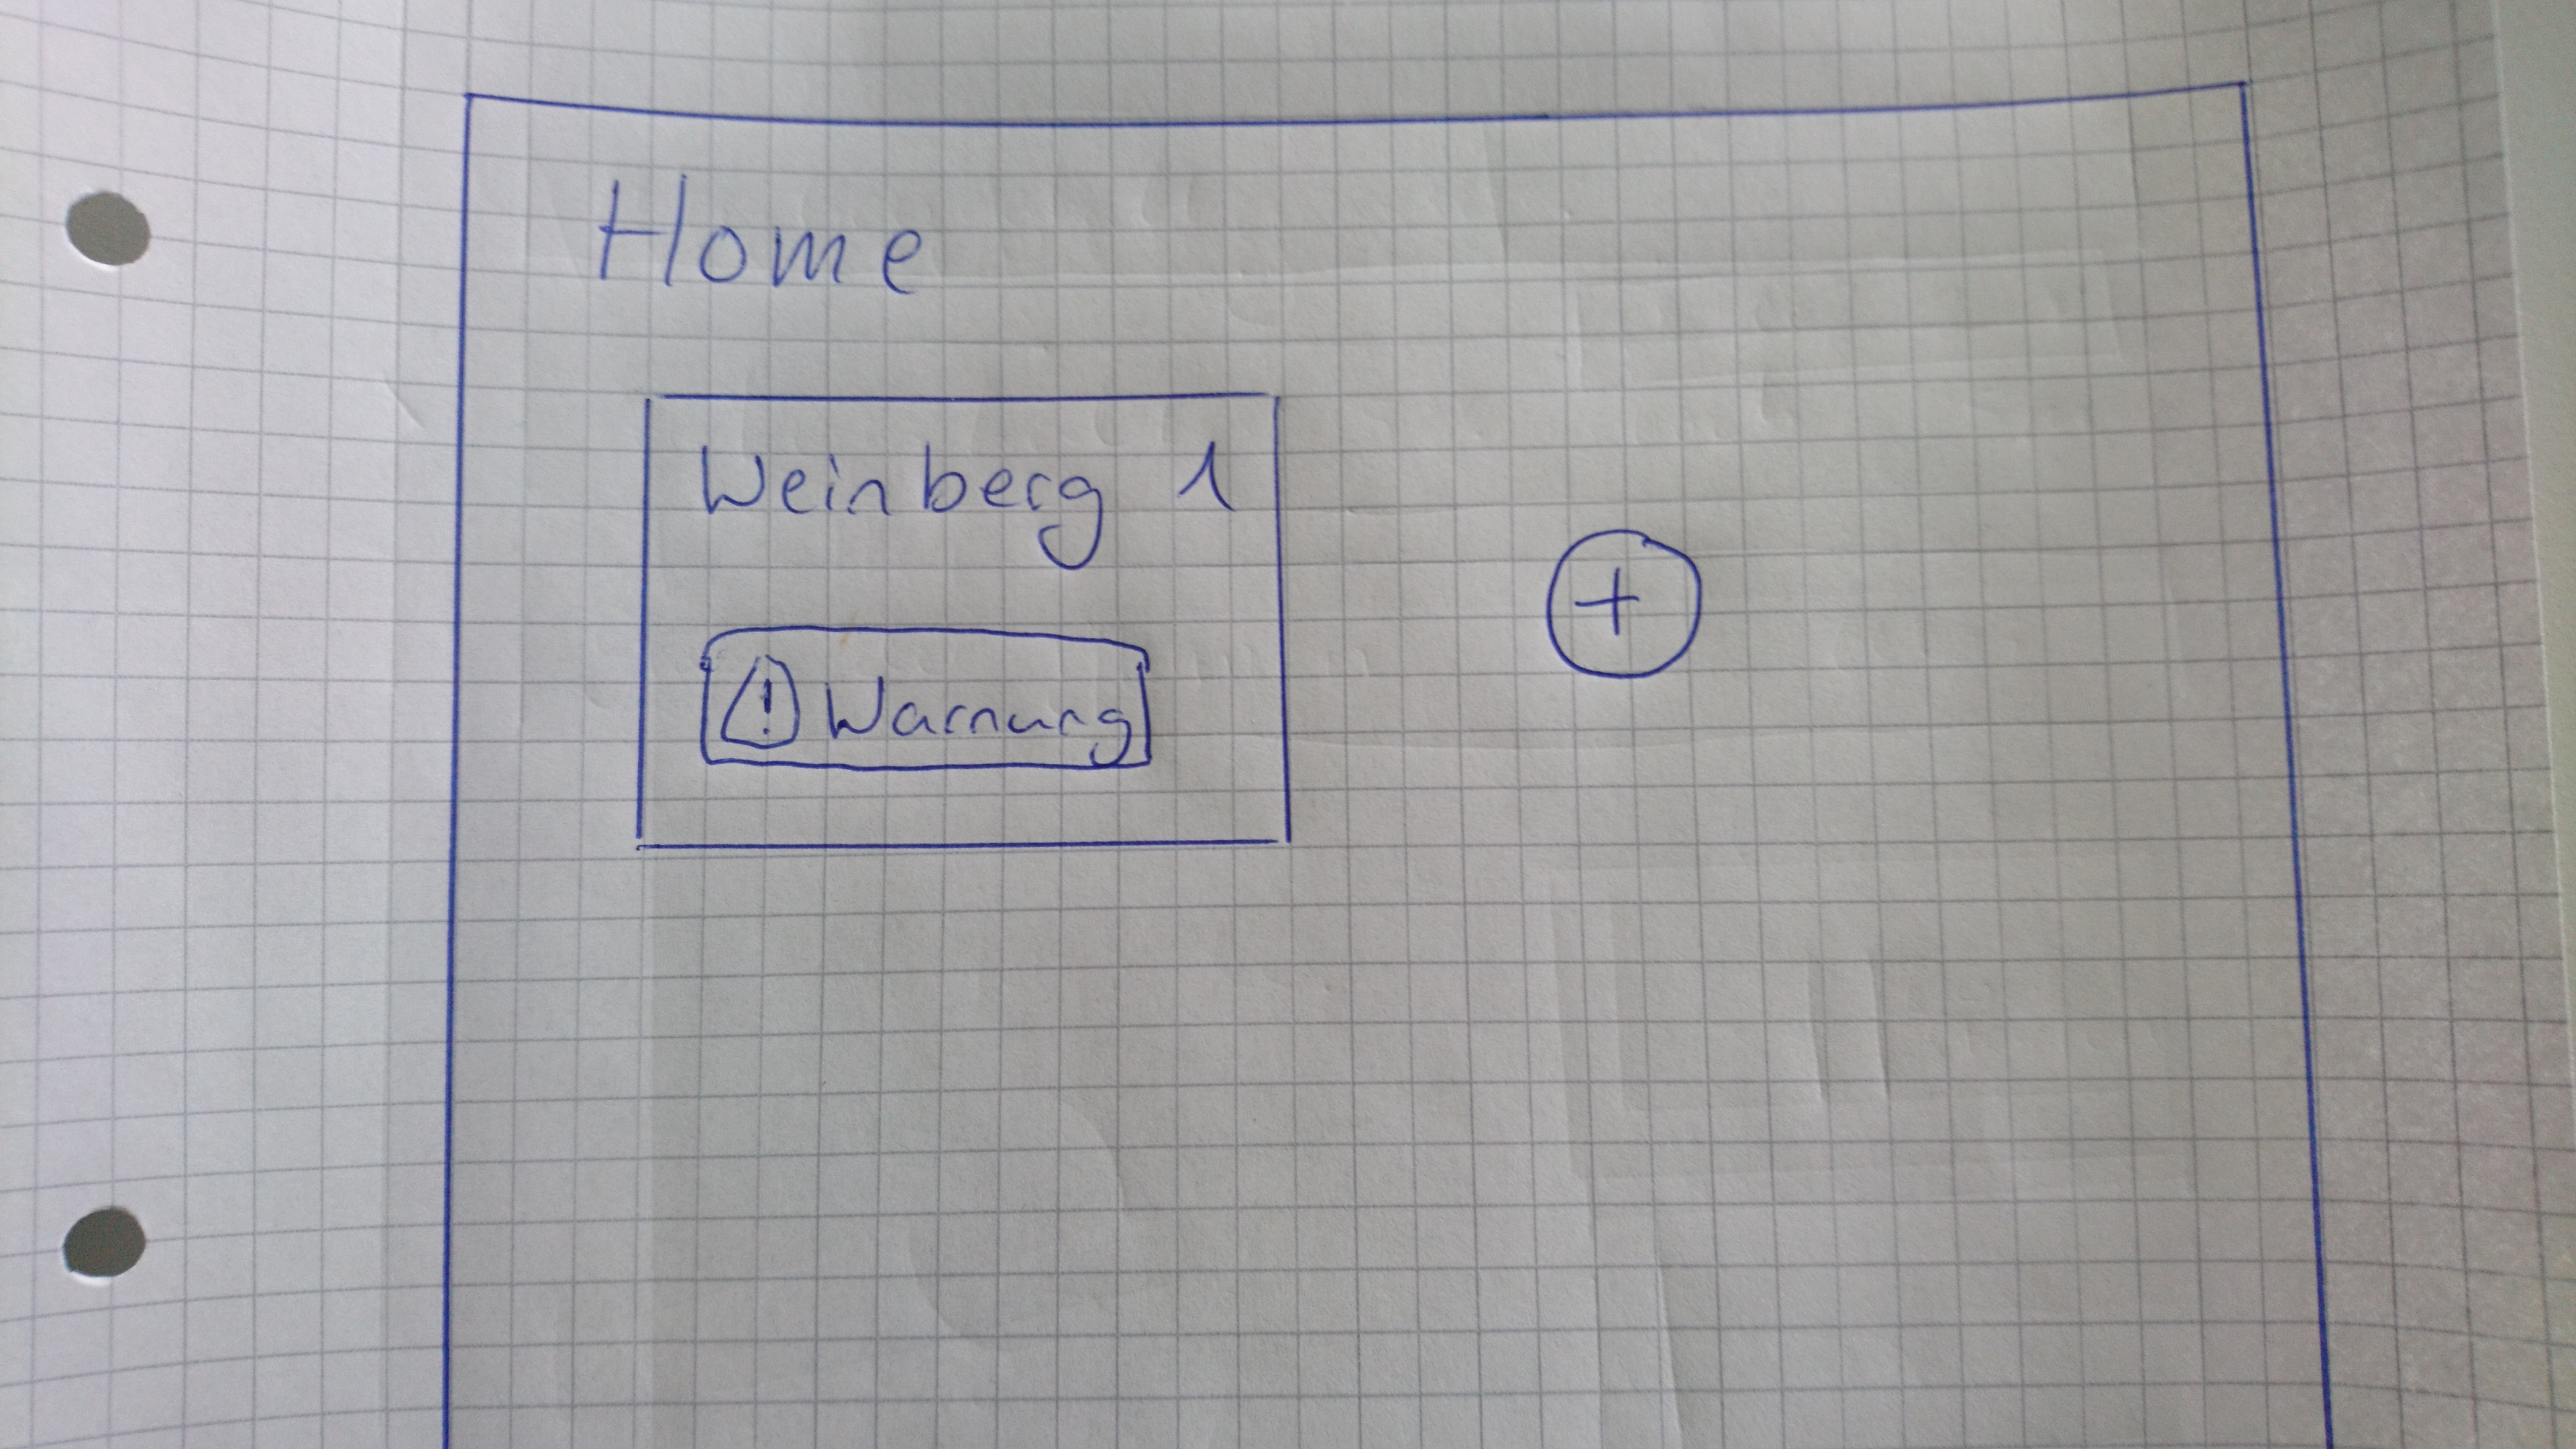 Home
Weinberg 1
+
! Warnung